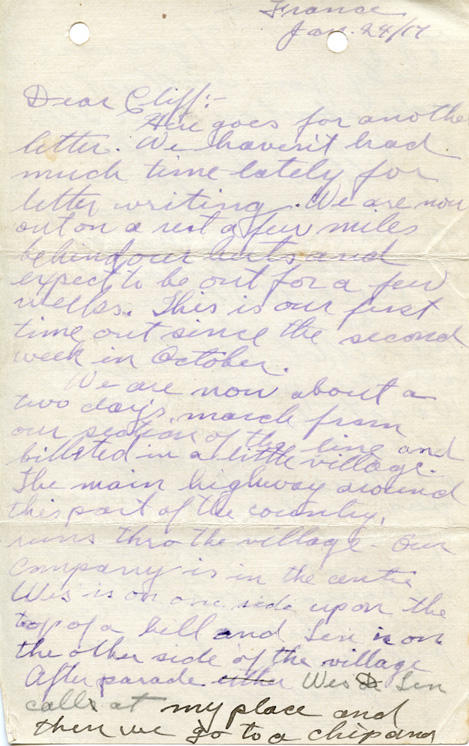 France
Jan. 24/17
Dear Cliff:-
Here goes for another
letter. We haven't had
much time lately for
letter writing. We are now
out on a rest a few miles
behind our huts and
expect to be out for a few
weeks. This is our first
time out since the second
week in October.
We are now about a
two days march from
our section of the line and
billeted in a little village.
The main highway around
this part of the country,
runs thro the village. Our
Company is in the centre
Wes is on one side upon the
top of a hill and Len is on
the other side of the village
After parade Wes & Len
calls at my place and
then we go to a chip and